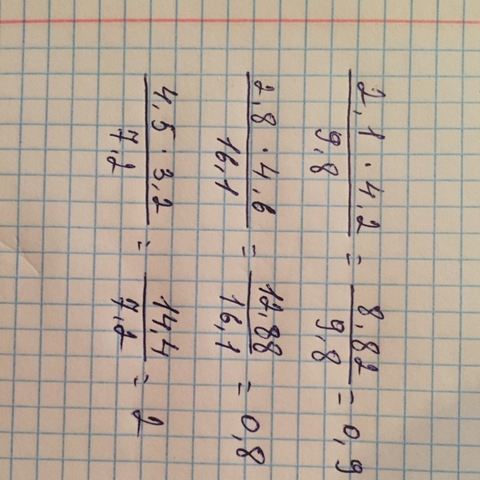 2,1 · 4,2 / 9,8 = 8,82 / 9,8 = 0,9
2,8 · 4,6 / 16,1 = 12,88 / 16,1 = 0,8
4,5 · 3,2 / 7,2 = 14,4 / 7,2 = 2